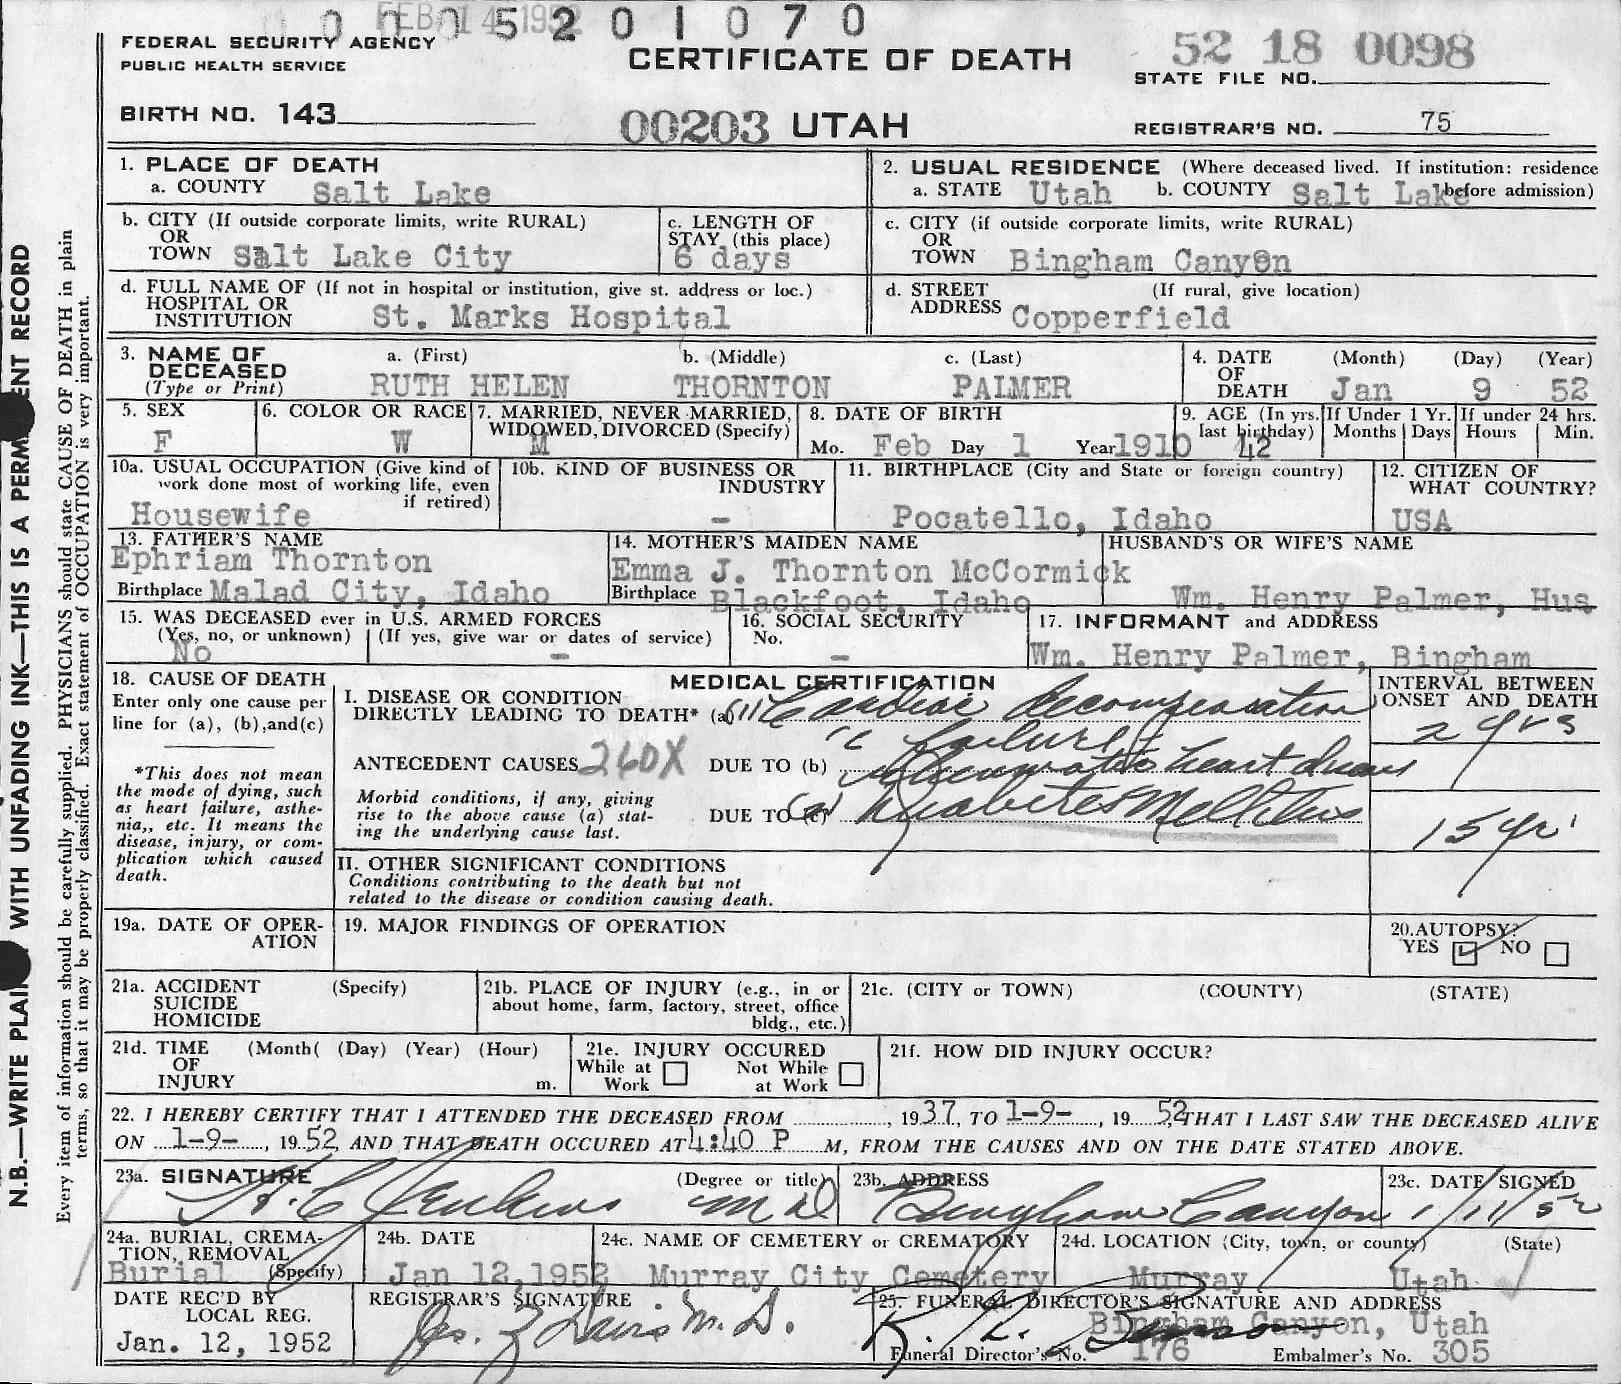 0 0 0 5 2 0 1 0 7 0
FEB 14 1952
FEDERAL SECURITY AGENCY
PUBLIC HEALTH SERVICE
CERTIFICATE OF DEATH
52 18 0098
STATE FILE NO.
BIRTH NO. 143
00203 UTAH
REGISTRAR'S NO. 75
1. PLACE OF DEATH
a. COUNTY Salt Lake
2. USUAL RESIDENCE (Where deceased lived. If institution: residence
a. STATE Utah b. COUNTY Salt Lake before admission)
b. CITY (If outside corporate limits, write RURAL)
OR
TOWN Salt Lake City
c. LENGTH OF
STAY (this place)
6 days
c. CITY (if outside corporate limits, write RURAL)
OR
TOWN Bingham Canyon
d. FULL NAME OF (If not in hospital or institution, give st. address or loc.)
HOSPITAL OR
INSTITUTION St. Marks Hospital
d. STREET (If rural, give location)
ADDRESS Copperfield
3. NAME OF a. (First) b. (Middle) c. (Last)
DECEASED
(Type or Print) RUTH HELEN THORNTON PALMER
4. DATE (Month) (Day) (Year)
OF
DEATH Jan 9 52
5. SEX
F
6. COLOR OR RACE
W
7. MARRIED, NEVER MARRIED,
WIDOWED, DIVORCED (Specify)
M
8. DATE OF BIRTH
Mo. Feb Day 1 Year 1910
9. AGE (In yrs.
last birthday)
42
If Under 1 Yr.
Months Days
If under 24 hrs.
Hours Min.
10a. USUAL OCCUPATION (Give kind of
work done most of working life, even
if retired)
Housewife
10b. KIND OF BUSINESS OR
INDUSTRY
-
11. BIRTHPLACE (City and State or foreign country)
Pocatello, Idaho
12. CITIZEN OF
WHAT COUNTRY?
USA
13. FATHER'S NAME
Ephriam Thornton
Birthplace Malad City, Idaho
14. MOTHER'S MAIDEN NAME
Emma J. Thornton McCormick
Birthplace Blackfoot, Idaho
HUSBAND'S OR WIFE'S NAME
Wm. Henry Palmer, Hus
15. WAS DECEASED ever in U.S. ARMED FORCES
(Yes, no, or unknown) (If yes, give war or dates of service)
No -
16. SOCIAL SECURITY
No.
-
17. INFORMANT and ADDRESS
Wm. Henry Palmer, Bingham
18. CAUSE OF DEATH
Enter only one cause per
line for (a), (b), and (c)
*This does not mean
the mode of dying, such
as heart failure, asthe-
nia,, etc. It means the
disease, injury, or com-
plication which caused
death.
MEDICAL CERTIFICATION
I. DISEASE OR CONDITION
DIRECTLY LEADING TO DEATH* (a) Cardiac decompensation
" failure
ANTECEDENT CAUSES 260X DUE TO (b) Rheumatic heart disease
Morbid conditions, if any, giving
rise to the above cause (a) stat-
ing the underlying cause last.
DUE TO (c) Diabetes Mellitus
INTERVAL BETWEEN
ONSET AND DEATH
2 yrs
15 yr
II. OTHER SIGNIFICANT CONDITIONS
Conditions contributing to the death but not
related to the disease or condition causing death.
19a. DATE OF OPER-
ATION
19. MAJOR FINDINGS OF OPERATION
20. AUTOPSY?
YES NO
21a. ACCIDENT (Specify)
SUICIDE
HOMICIDE
21b. PLACE OF INJURY (e.g., in or
about home, farm, factory, street, office
bldg., etc.)
21c. (CITY or TOWN) (COUNTY) (STATE)
21d. TIME (Month( (Day) (Year) (Hour)
OF
INJURY m.
21e. INJURY OCCURED
While at Not While
Work at Work
21f. HOW DID INJURY OCCUR?
22. I HEREBY CERTIFY THAT I ATTENDED THE DECEASED FROM , 1937, TO 1-9- , 19 52, THAT I LAST SAW THE DECEASED ALIVE
ON 1-9- , 19 52, AND THAT DEATH OCCURED AT 4:40 P M, FROM THE CAUSES AND ON THE DATE STATED ABOVE.
23a. SIGNATURE (Degree or title)
H. C. Jenkins M D
23b. ADDRESS
Bingham Canyon
23c. DATE SIGNED
1/11/52
24a. BURIAL, CREMA-
TION, REMOVAL
Burial (Specify)
24b. DATE
Jan 12, 1952
24c. NAME OF CEMETERY or CREMATORY
Murray City Cemetery
24d. LOCATION (City, town, or county) (State)
Murray Utah
DATE REC'D BY
LOCAL REG.
Jan. 12, 1952
REGISTRAR'S SIGNATURE
Jos. Z Davis M. D.
25. FUNERAL DIRECTOR'S SIGNATURE AND ADDRESS
Bingham Canyon, Utah
Funeral Director's No. 176 Embalmer's No. 305
N.B.—WRITE PLAIN WITH UNFADING INK—THIS IS A PERMANENT RECORD
Every item of information should be carefully supplied. PHYSICIANS should state CAUSE OF DEATH in plain
terms, so that it may be properly classified. Exact statement of OCCUPATION is very important.